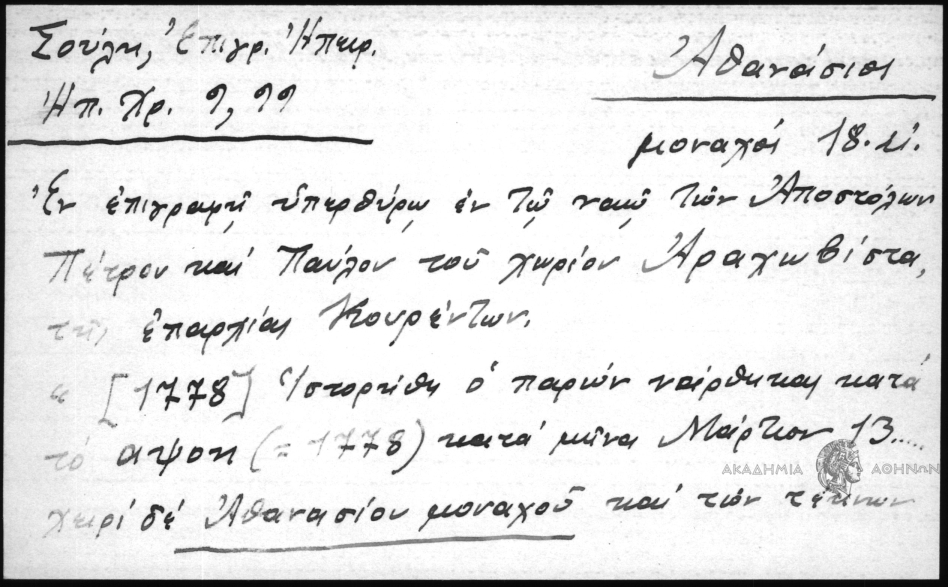 Σούλη, Ἐπιγρ. Ἠπειρ.
Ἠπ. Χρ. 9, 99
Ἀθανάσιοι
μοναχοί 18. αἰ.
Ἐν ἐπιγραφῇ ὑπερθύρῳ ἐν τῷ ναῷ τῶν Ἀποστόλων
Πέτρου καί Παύλου τοῦ χωρίου Ἀραχωβίστα,
τῆς ἐπαρχίας Κουρέντων.
« [1778] Ἱστορήθη ὁ παρών νάρθηκας κατά
τό αψοη (= 1778) κατά μῆνα Μάρτιον 13.....
χειρί δέ Ἀθανασίου μοναχοῦ καί τῶν τέκνων
ΑΚΑΔΗΜΙΑ ΑΘΗΝΩΝ